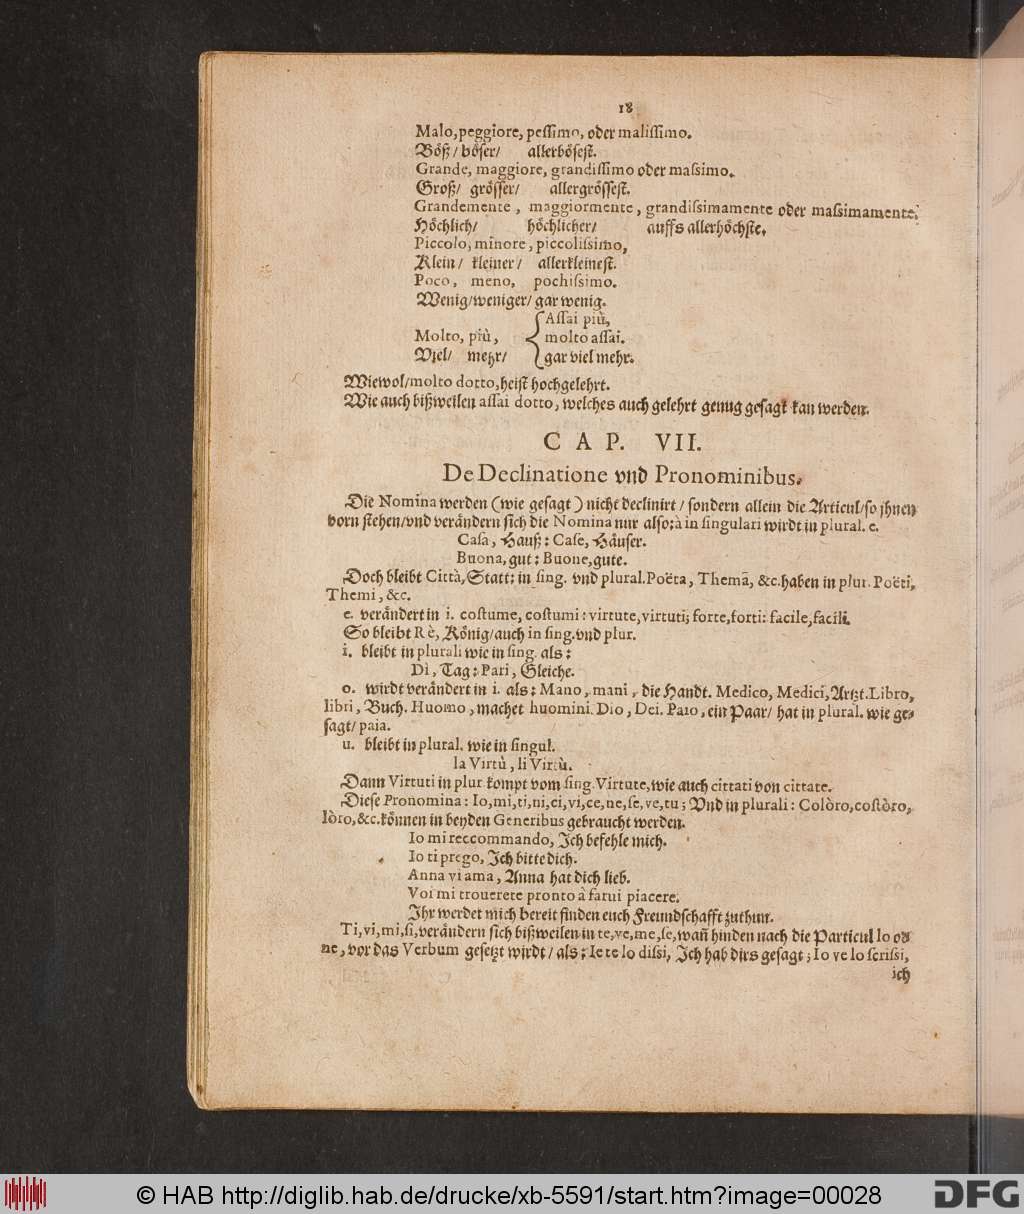 18
Malo, peggiore, pessimo, oder malissimo.
Böß / böser / allerbösest.
Grande, maggiore, grandissimo oder massimo.
Groß / grösser / allergrössest.
Grandemente, maggiormente, grandissimamente oder massimamente.
Höchlich / höchlicher / auffs allerhöchste.
Piccolo, minore, piccolissimo,
Klein / kleiner / allerkleinest.
Poco, meno, pochissimo.
Wenig / weniger / gar wenig.
Assai più,
Molto, più, molto assai.
Viel / mehr / gar viel mehr.
Wiewol / molto dotto, heist hochgelehrt.
Wie auch bißweilen assai dotto, welches auch gelehrt genug gesagt kan werden.
CAP. VII.
De Declinatione vnd Pronominibus.
Die Nomina werden (wie gesagt) nicht declinirt / sondern allein die Articul / so jhnen
vorn stehen / vnd verändern sich die Nomina nur also: à in singulari wirdt in plural. e.
Casa, Hauß: Case, Häuser.
Buona, gut: Buone, gute.
Doch bleibt Città, Statt: in sing. vnd plural. Poëta, Themā, &c. haben in plur. Poëti,
Themi, &c.
e. verändert in i. costume, costumi: virtute, virtuti; forte, forti: facile, facili.
So bleibt Rè, König / auch in sing. vnd plur.
i. bleibt in plurali wie in sing. als:
Dì, Tag: Pari, Gleiche.
o. wirdt verändert in i. als: Mano, mani, die Handt. Medico, Medici, Artzt. Libro,
libri, Buch. Huomo, machet huomini. Dio, Dei. Paio, ein Paar / hat in plural. wie ge-
sagt / paia.
u. bleibt in plural. wie in singul.
la Virtù, li Virtù.
Dann Virtuti in plur. kompt vom sing. Virtute, wie auch cittati von cittate.
Diese Pronomina: Io, mi, ti, ni, ci, vi, ce, ne, se, ve, tu; Vnd in plurali: Colòro, costòro,
lòro, &c. können in beyden Generibus gebraucht werden.
Io mi reccommando, Ich befehle mich.
Io ti prego, Ich bitte dich.
Anna vi ama, Anna hat dich lieb.
Voi mi trouerete pronto à farui piacere.
Ihr werdet mich bereit finden euch Freundschafft zuthun.
Ti, vi, mi, si, verändern sich bißweilen in te, ve, me, se, wañ hinden nach die Particul lo od
ne, vor das Verbum gesetzt wirdt / als: Ie te lo dissi, Ich hab dirs gesagt; Io ve lo scrissi,
ich
© HAB http://diglib.hab.de/drucke/xb-5591/start.htm?image=00028
DFG